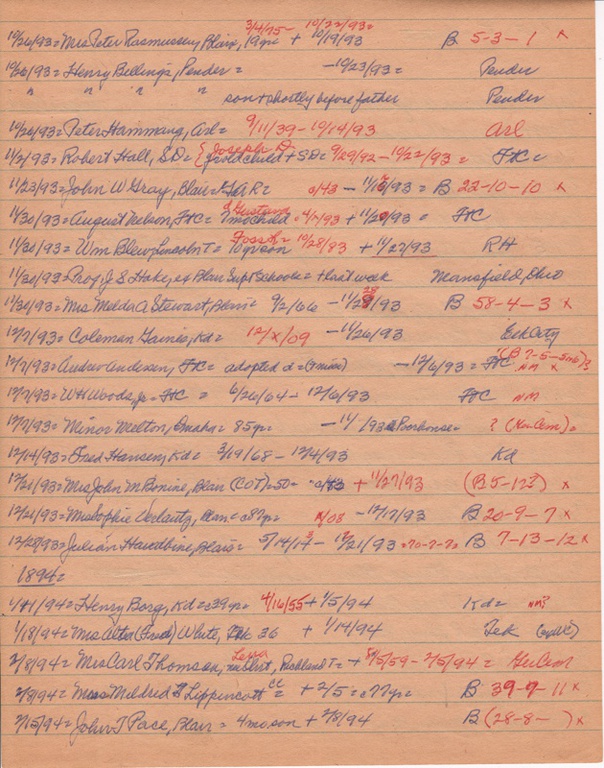 3/4/75- 10/22/93=
10/26/93= Mrs Peter Rasmussen, Blair, 19yr + 10/19/93 B 5-3-1 x
10/26/93= Henry Bellings, Pender = -10/23/93= Pender
" " " " son + shortly before father Pender
10/26/93= Peter Hammang, Arl= 9/11/39-10/14/93 Arl
11/2/93= Robert Hall, SD= { Joseph D. child + SD= 9/29/92-10/22/93 = FtC=
11/23/93= John W Gray, Blair= GAR= c/43 - 11/ /93= B 22-10-10 x
11/30/93= August Nelson, FtC= Gustava 7mochild = 4/ /93 + 11/2 /93 = FtC
11/30/93= Wm Blew, Lincoln T= 10yr son 10/28/83 + 11/27/93 RH
11/30/93= Prof J S Hake, ex Blair Supt Schools= + last week Mansfield, Ohio
11/30/93= Mrs. Melda A Stewart, Blair= 9/2/66 - 11/28/93 B 58-4-3 x
12/7/93= Coleman Gaines, Kd= 12/x/09 -11/26/93 Elk City
12/7/93= Andrew Andersen, FtC= adopted d= -12/6/93= FtC NM (B ?-5- )? x
12/7/93= WH Woods, Jr= FtC = 6/26/64-12/6/93 FtC NM
12/7/93= Minor Melton, Omaha= 85yr= -11/ /93 Poorhouse= ?
12/14/93= Fred Hansen, Kd= 3/19/68-12/4/93 Kd
12/21/93= Mrs John M Bonine, Blair (COT)=50= + 11/27/93 (B 5-12?) x
12/21/93= Mrs Sophie , Blair= c87yr= x/08 -12/17/93 B 20-9-7 x
12/28/93= Julian Hawdbine, Blair= 5/14/ - 12/21/93=70-7-7= B 7-13-12 x
1894=
1/11/94= Henry Borg, Kd= c39yr= 4/16/55 + 1/5/94 Kd= NM?
1/18/94= Mrs Alter (Fred) White, Tek 36 + 1/14/94 Tek
2/8/94= Mrs Carl Thomson, Lena, Richland T= + 8/5/59-2/5/94 = GerCem
2/8/94= Miss Mildred Lippincott cc = + 2/5= c77yr= B 39-9-11 x
2/15/94= John T Pace, Blair = 4mo, son + 2/8/94 B (28-8- ) x